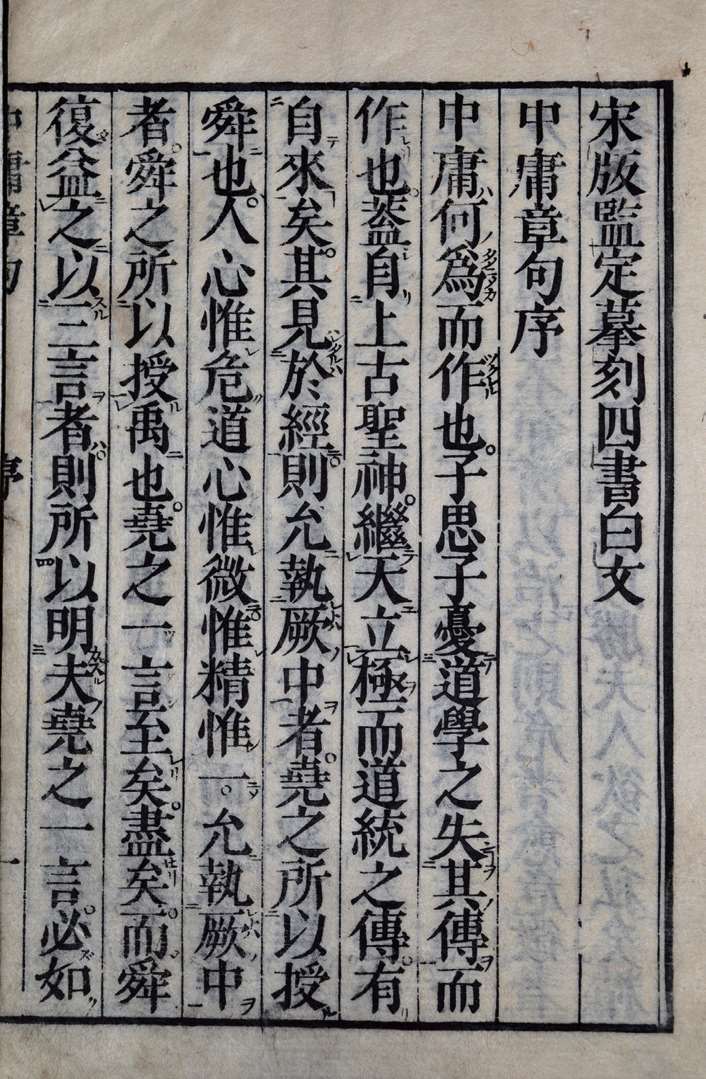 宋版監定摹刻四書白文
中庸章句序
中庸何爲而作也子思子憂道學之失其傳而
作也蓋自上古聖神繼天立極而道統之傳有
自來矣其見於經則允執厥中者堯之所以授
舜也人心惟危道心惟微惟精惟一允執厥中
者舜之所以授禹也堯之一言至矣盡矣而舜
復益之以三言者則所以明夫堯之一言必如
中庸章句 序 一